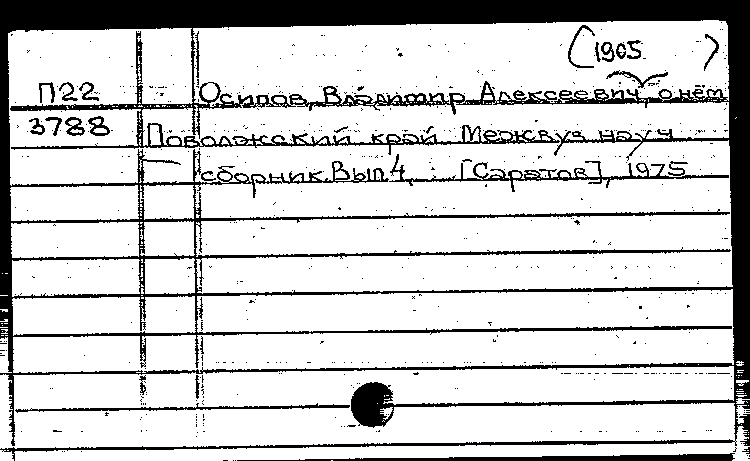 (1905 )
П22 Осипов, Владимир Алексеевич, о нём
3788 Поволжский край Межвуз науч
сборник. Вып 4, [Саратов], 1975